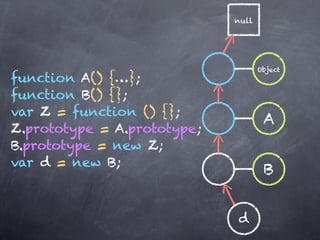 null
Object
function A() {...};
function B() {};
var Z = function () {};
Z.prototype = A.prototype;
B.prototype = new Z;
var d = new B;
A
B
d